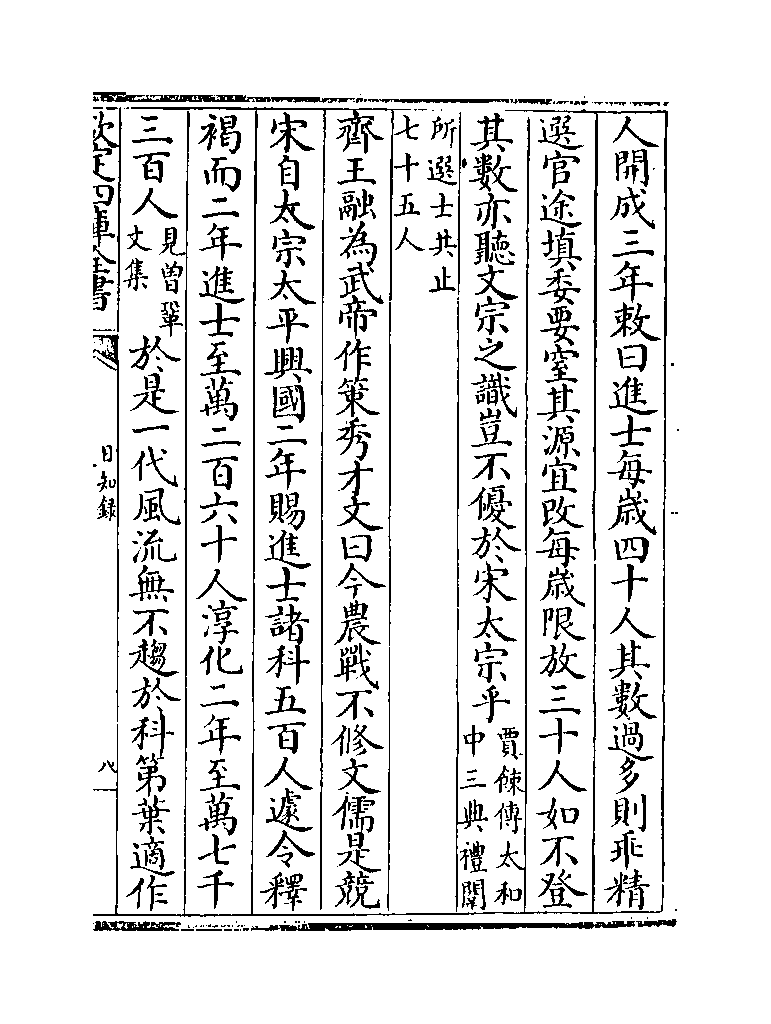 人開成三年敕曰進士每歲四十人其數過多則乖精
選官途填委要窒其源宜改每歲限放三十人如不登
其數亦聽文宗之識豈不優於宋太宗乎賈餗傳太和中三典禮闈
所選士共止七十五人
齊王融為武帝作策秀才文曰今農戰不修文儒是競
宋自太宗太平興國二年賜進士諸科五百人遽令釋
褐而二年進士至萬二百六十人淳化二年至萬七千
三百人見曾鞏文集於是一代風流無不趨於科第葉適作
欽定四庫全書
日知錄
八